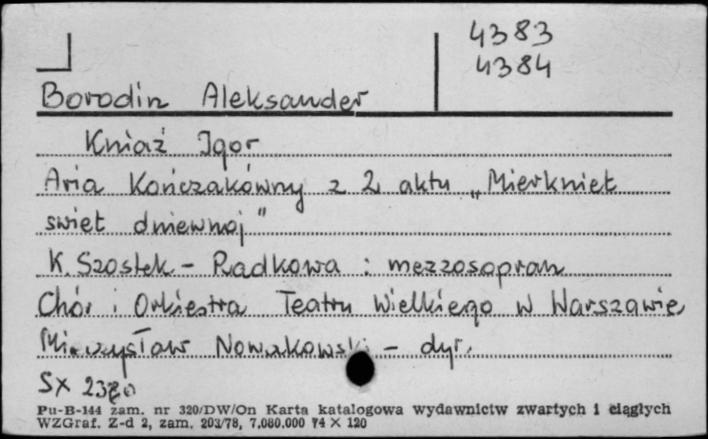 4383
4384
Borodin Aleksander
Kniaź Igor
Aria Kończakówny z 2 aktu „Mierkniet
swiet dniewnoj"
K. Szostek - Radkowa : mezzosopran
Chór i Orkiestra Teatru Wielkiego w Warszawie
Mieczysław Nowakowski - dyr.
SX
Pu-B-144 zam. nr 320/DW/On Karta katalogowa wydawnictw zwartych i ciągłych
WZGraf. Z-d 2, zam. 203/78, 7.080.000 74 X 120